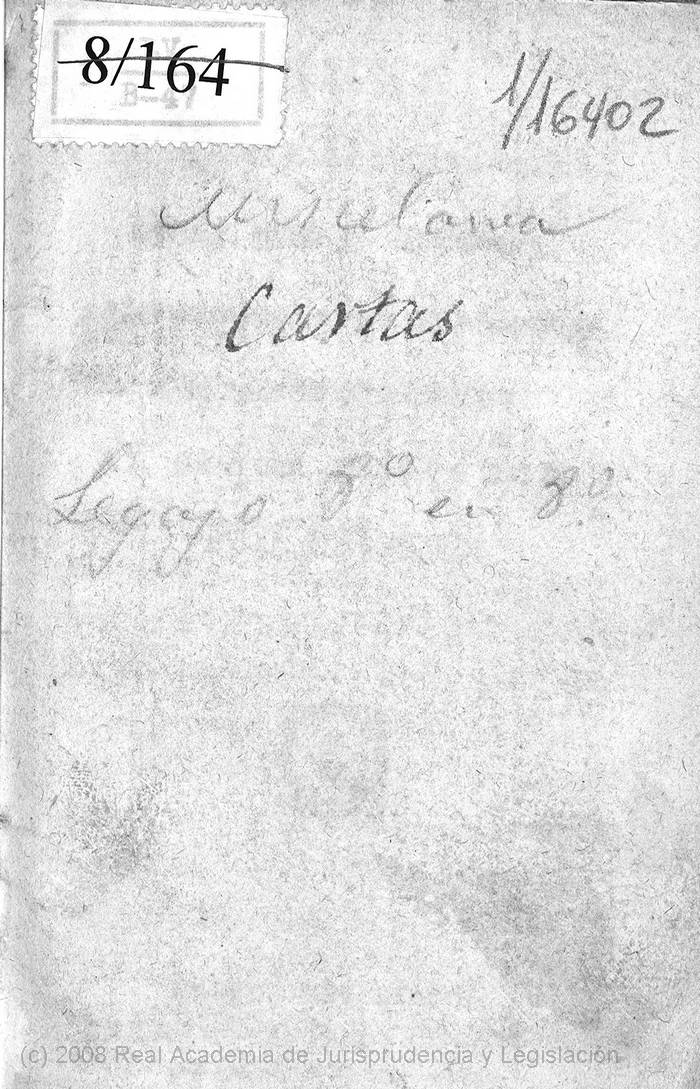 8/164
B-47
1/16402
Miscelanea
Cartas
Legajo 8º en 8º
(c) 2008 Real Academia de Jurisprudencia y Legislación